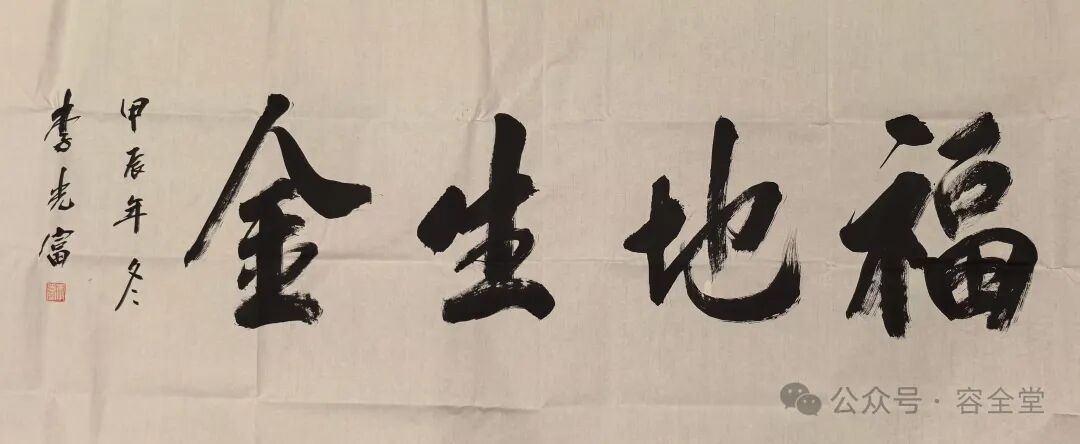 福地生金
甲辰年冬
李光富
公众号·容全堂